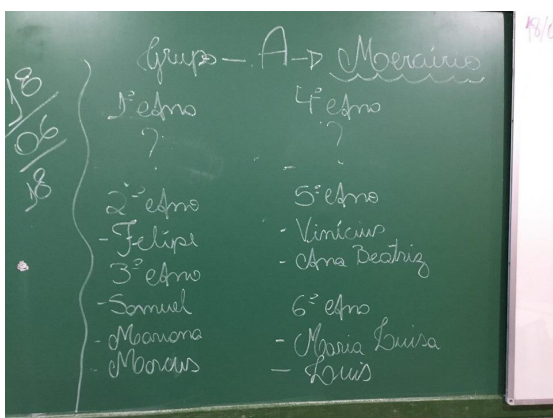 Grupo - A -> Mercúrio
18/06/18
1º Ano
?
2º Ano
- Felipe
3º Ano
- Samuel
- Mariana
- Marcus
4º Ano
?
5º Ano
- Vinícius
- Ana Beatriz
6º Ano
- Maria Luisa
- Luis
18/0